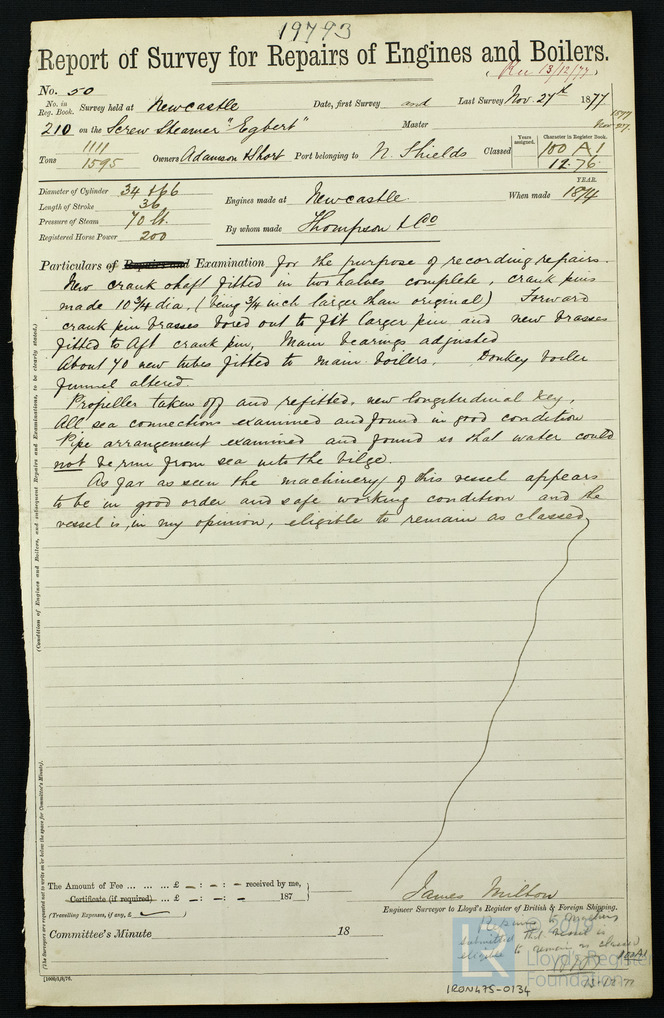 19793
Report of Survey for Repairs of Engines and Boilers.
Rec 13/12/77
No. 50
No. in Reg. Book. Survey held at Newcastle Date, first Survey and Last Survey Nov. 27th 1877
210 on the Screw Steamer "Egbert" Master
Tons 1111
1595 Owners Adamson & Short Port belonging to N. Shields Classed Years assigned. Character in Register Book. 100 A1
12.76
Diameter of Cylinder 34 & 66
Length of Stroke 36
Pressure of Steam 70 lb.
Registered Horse Power 200
Engines made at Newcastle When made YEAR. 1874
By whom made Thompson & Co
Particulars of Repairs and Examination for the purpose of recording repairs.
New crank shaft fitted in two halves complete, crank pins
made 10 3/4 dia, (being 3/4 inch larger than original) Forward
crank pin brasses bored out to fit larger pin and new brasses
fitted to Aft crank pin, Main bearings adjusted
About 70 new tubes fitted to main boilers. Donkey boiler
funnel altered.
Propeller taken off and refitted, new longitudinal key,
All sea connections examined and found in good condition
Pipe arrangement examined and found so that water could
not be run from sea into the bilge.
As far as seen the machinery of this vessel appears
to be in good order and safe working condition and the
vessel is, in my opinion, eligible to remain as classed
(Condition of Engines and Boilers, and subsequent Repairs and Examinations, to be clearly stated.)
(The Surveyors are requested not to write on or below the space for Committee's Minute).
The Amount of Fee ... ... ... £ - : - : - received by me,
Certificate (if required) ... £ - : - : - 187
(Travelling Expenses, if any, £ )
James Milton
Engineer Surveyor to Lloyd's Register of British & Foreign Shipping.
Committee's Minute 18
submitted that vessel is
eligible to remain as classed
100A1
13.12.77
LR
Lloyd's Register
Foundation
IRON475-0134